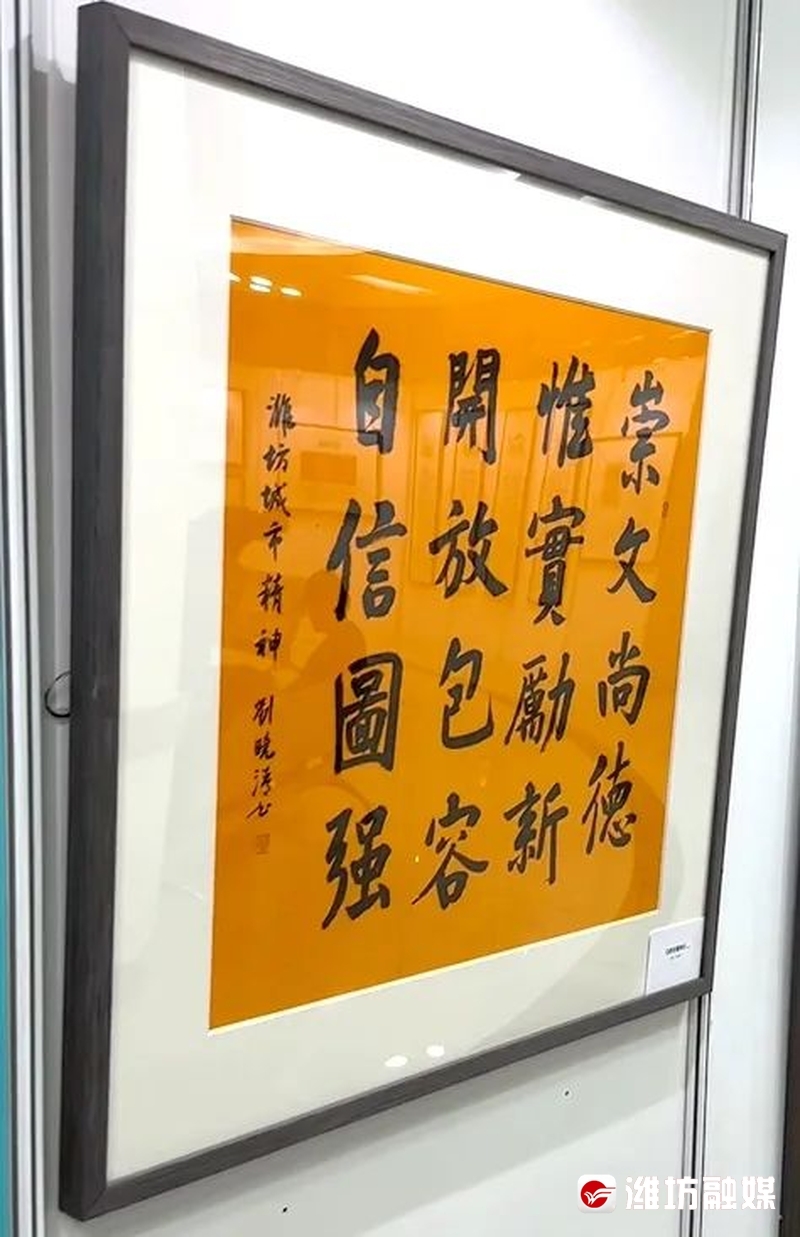 崇文尚德
惟實勵新
開放包容
自信圖强
潍坊城市精神 劉曉清书
潍坊融媒